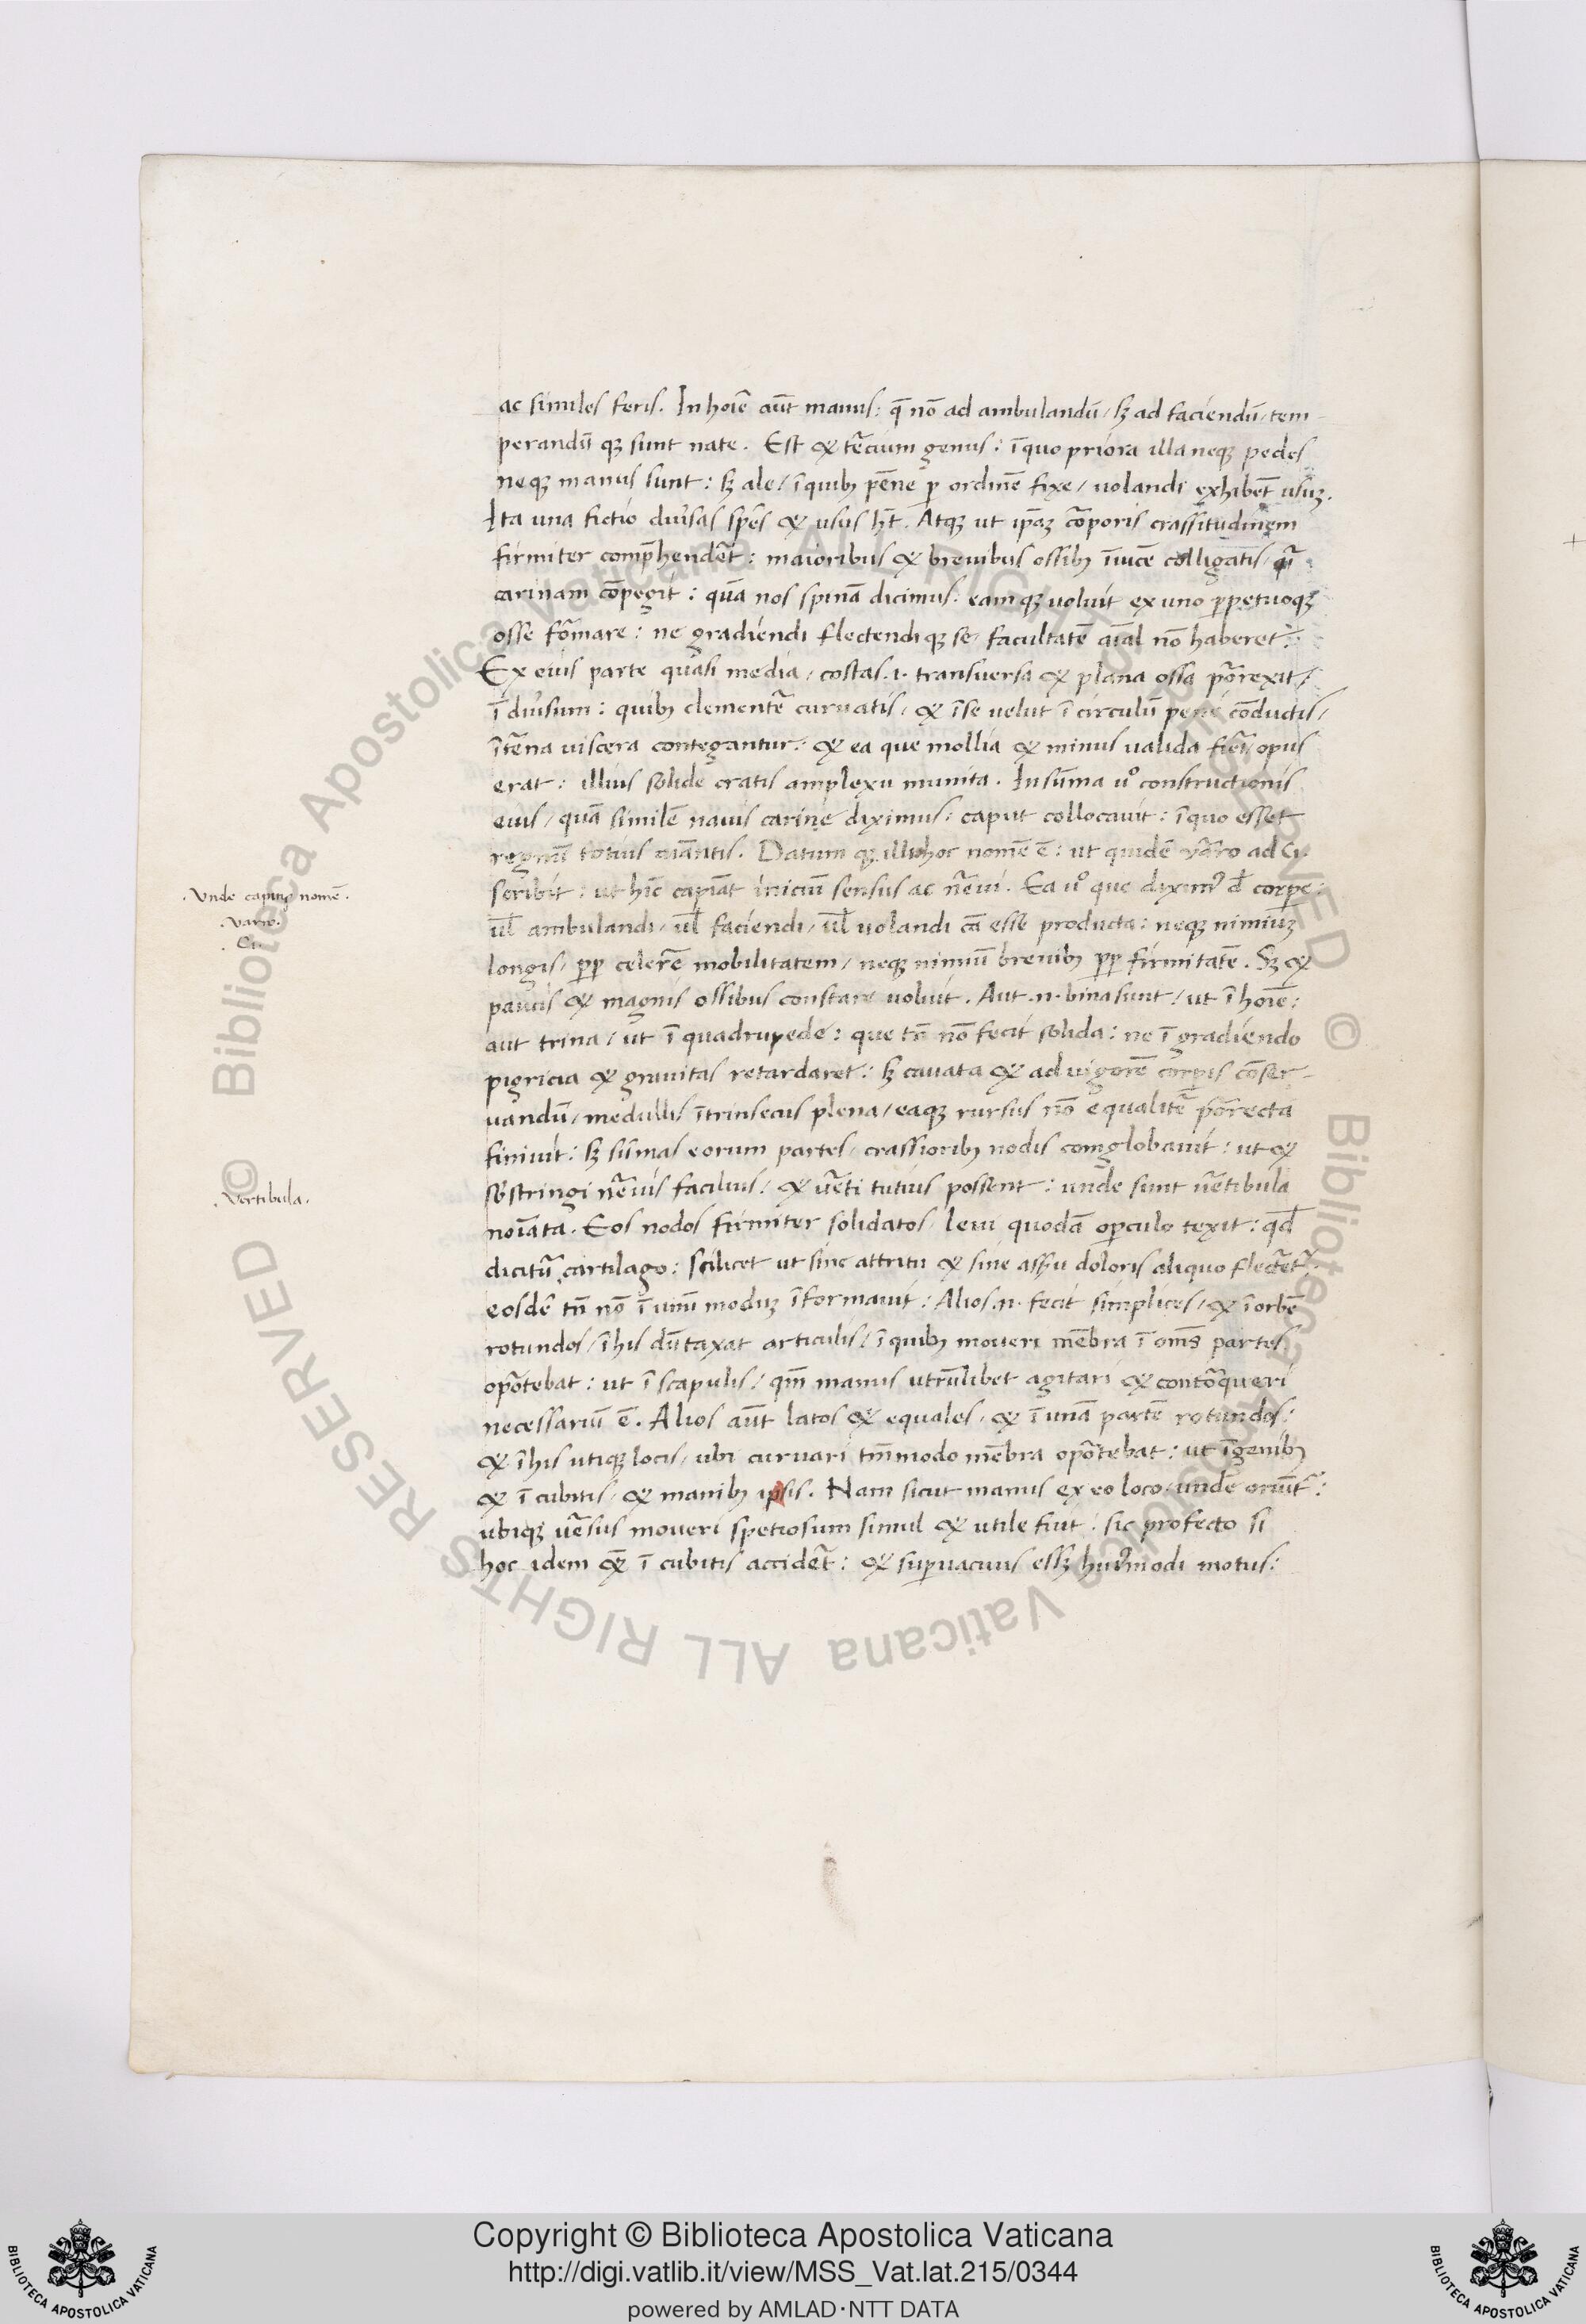 ac similes feris. In hoīe aūt manus: q̄ nō ad ambulandū, sꝫ ad faciendū, tem-
perandū qꝫ sunt nate. Est & t̃cium genus: ī quo priora illa neqꝫ pedes
neqꝫ manus sunt: sꝫ ale, ī quibꝫ pēne ꝑ ordinē fixe, uolandi exhibēt usuꝫ.
Ita una fictio diũsas sp̄es & usus hn̄t. Atqꝫ ut ip̄aꝫ cor̃poris crassitudinem
firmiter comp̄hender̃t: maioribus & breuibus ossibꝫ īuicē colligatis, q̄i
carinam cōpegit: quā nos spinā dicimus. eamqꝫ uoluit ex uno ꝑpetuoqꝫ
osse for̃mare: ne gradiendi flectendiqꝫ se, facultatē aīal nō haberet.
Ex eius parte quasi media, costas .i. transuersa & plana ossa por̃rexit,
ī diũsum: quibꝫ clement̃ curuatis, & īse uelut ī circulū pene cōductis,
īt̃na uiscera contegantur. & ea que mollia & minus ualida fier̃i, opus
erat: illius solide cratis amplexu munita. In sūma ũo constructionis
eius, quā similē nauis carine diximus: caput collocauit: ī quo esset
regnū totius aīantis. Datum qꝫ illi hoc nomē ē: ut quidē var̃ro ad Ci.
scribit: ut hīc capiāt iniciū sensus ac ner̃ui. Ea ũo que diximꝰ đ corpe:
ul̄ ambulandi, ul̄ faciendi, ul̄ uolandi cā esse producta: neqꝫ nimiuꝫ
longis, ꝓp̄ celerē mobilitatem, neqꝫ nimiū breuibꝫ ꝓp̄ firmitatē. Sꝫ &
paucis & magnis ossibus constare uoluit. Aut .n. bina sunt, ut ī hoīe:
aut trina, ut ī quadrupede: que tn̄ nō fecit solida: ne ī gradiendo
pigricia & grauitas retardaret: sꝫ cauata & ad uigorē corꝑis cōser-
uandū, medullis ītrinsecus plena, eaqꝫ rursus nō equalit̃ por̃recta
finiuit: sꝫ sūmas eorum partes, crassioribꝫ nodis comglobauit: ut &
sb̄stringi ner̃uis facilius, & ũti tutius possent: unde sunt ũtibula
noīata. Eos nodos firmiter solidatos, leui quodā oꝑculo texit: qđ
dicitũ cartilago: scilicet ut sine attritu & sine assu doloris aliquo flecter̃t̃.
eosdē tn̄ nō ī unū moduꝫ īformauit: Alios .n. fecit simplices, & ī orbē
rotundos, ī his dūtaxat articulis, ī quibꝫ moueri mēbra ī om̄s partes
opor̃tebat: ut ī scapulis, qm̄ manus utrūlibet agitari & contor̃queri
necessariū ē. Alios aūt latos & equales, & ī unā partē rotundos:
& ī his utiqꝫ locis, ubi curuari tm̄modo mēbra opor̃tebat: ut ī genibꝫ
& ī cubitis, & manibꝫ ipsis. Nam sicut manus ex eo loco, unde oriūt̃:
ubiqꝫ ũsus moueri spetiosum simul & utile fuit: sic profecto si
hoc idem qꝫ̄ ī cubitis accider̃t: & suꝑuacuus essꝫ huiꝰmodi motus:
.Vnde capitis nomē.
.Varro.
.Ci.
.Vertibula.
© Biblioteca Apostolica Vaticana ALL RIGHTS RESERVED
Copyright © Biblioteca Apostolica Vaticana
http://digi.vatlib.it/view/MSS_Vat.lat.215/0344
powered by AMLAD·NTT DATA
BIBLIOTECA APOSTOLICA VATICANA
BIBLIOTECA APOSTOLICA VATICANA